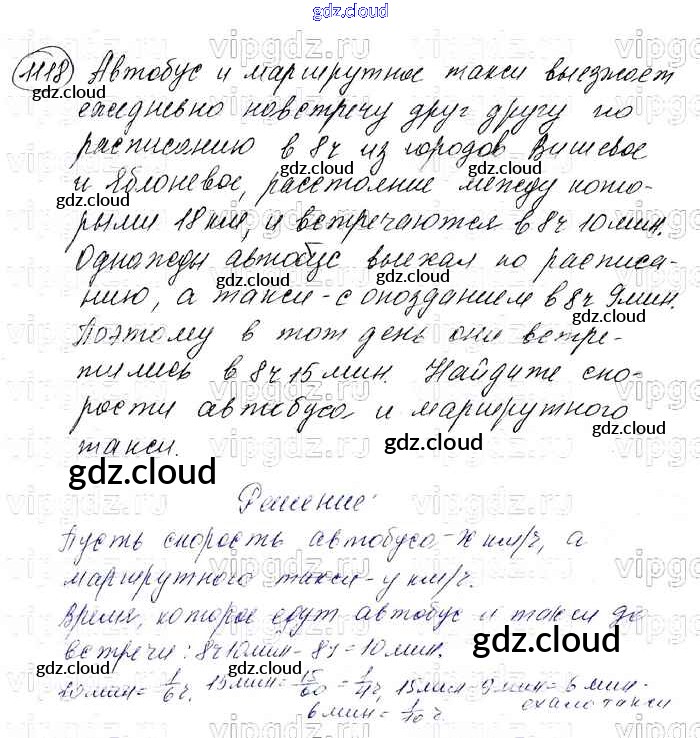 gdz.cloud
1118) Автобус и маршрутное такси выезжает
ежедневно навстречу друг другу по
расписанию в 8ч из городов Вишневое
и Яблоневое, расстояние между кото-
рыми 18 км, и встречаются в 8ч 10мин.
Однажды автобус выехал по расписа-
нию, а такси - с опозданием в 8ч 9мин.
Поэтому в тот день они встре-
тились в 8ч 15 мин. Найдите ско-
рости автобуса и маршрутного
такси.
gdz.cloud
Решение:
Пусть скорость автобуса - x км/ч, а
маршрутного такси - y км/ч.
Время, которое едут автобус и такси до
встречи: 8ч10мин - 8ч = 10 мин.
10 мин = 1/6 ч. 15 мин = 15/60 = 1/4 ч, 15 мин - 9 мин = 6 мин -
6 мин = 1/10 ч. ехало такси